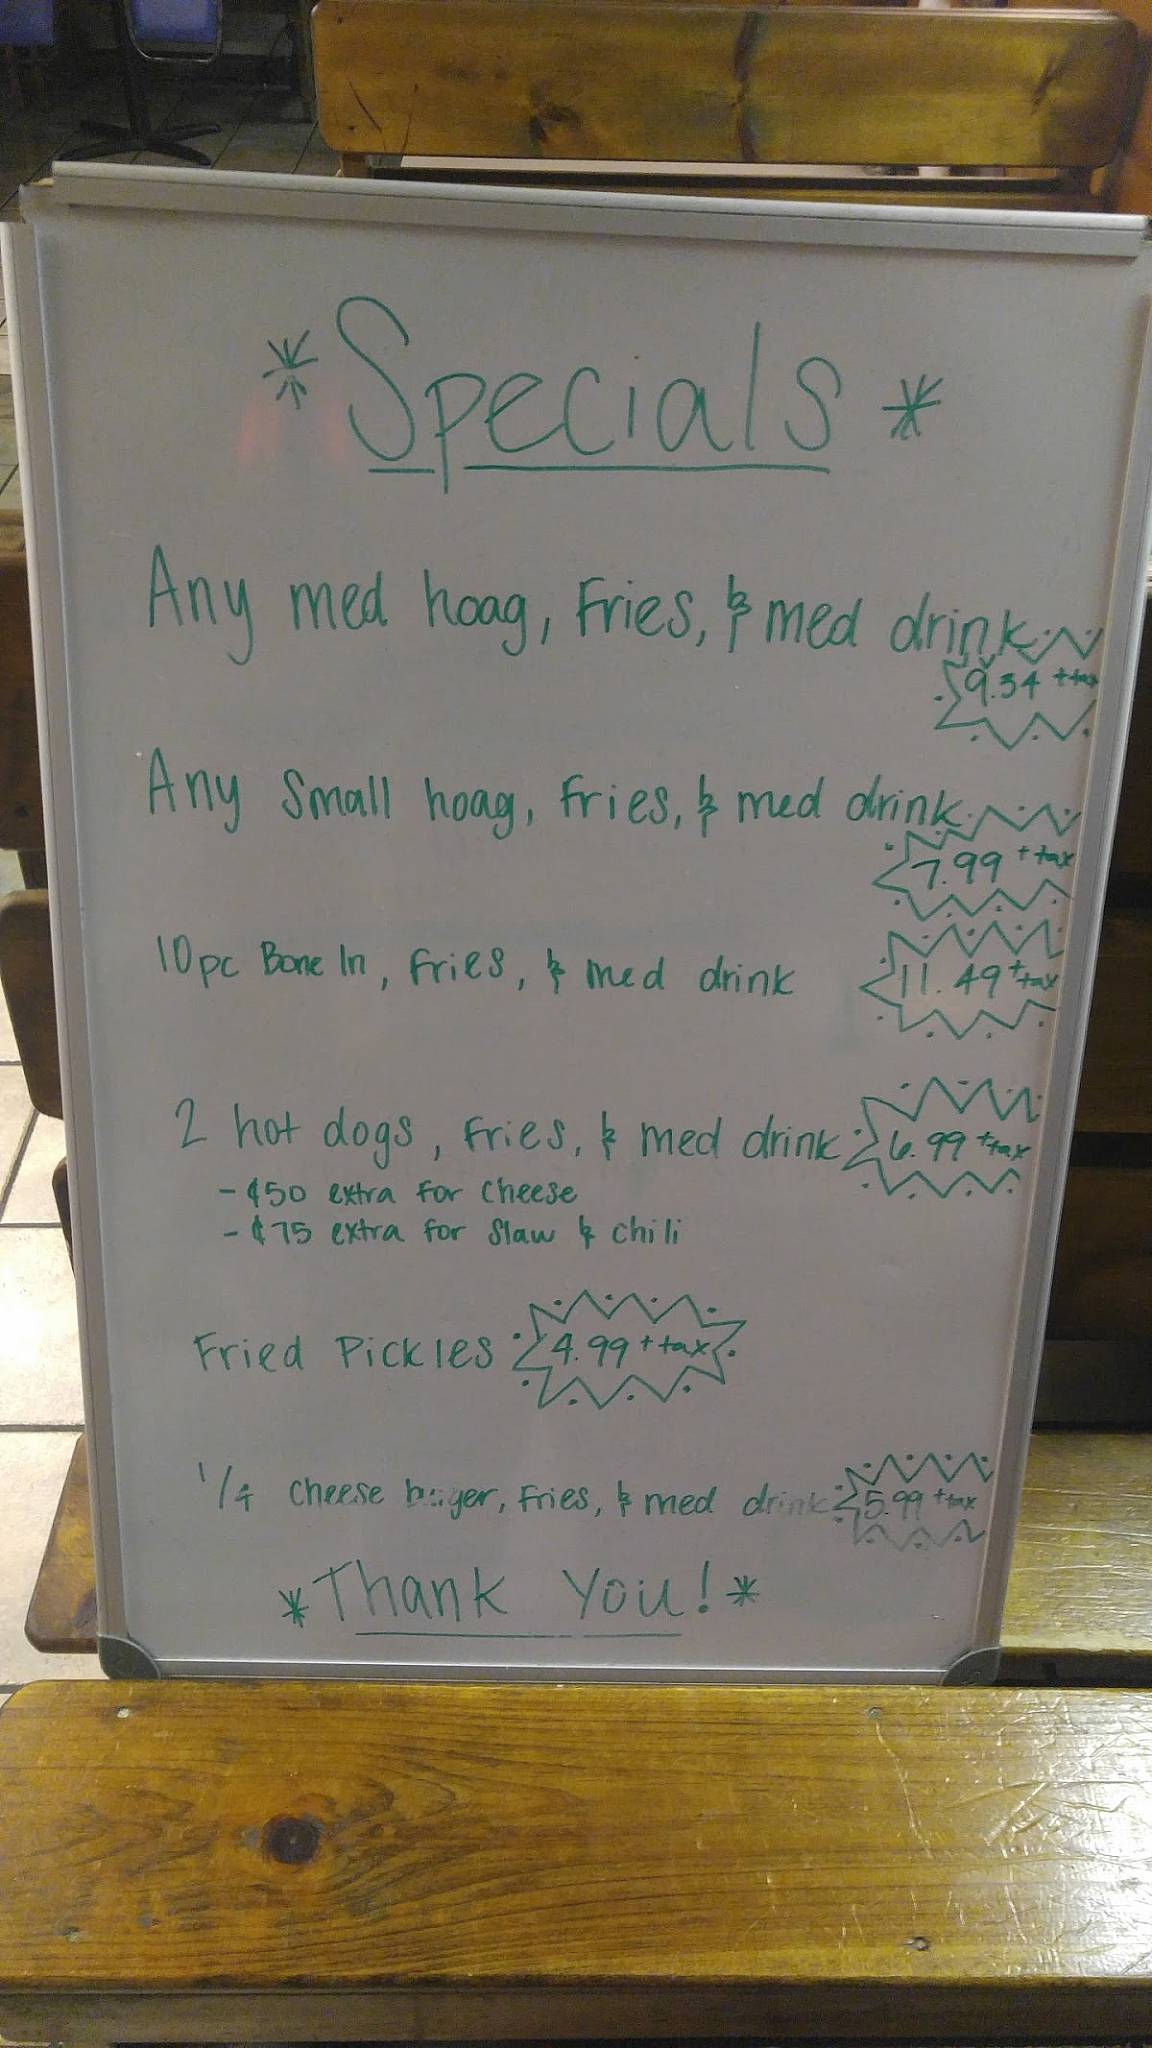 *Specials*
Any med hoag, Fries, & med drink
9.34 + tax
Any Small hoag, Fries, & med drink
7.99 + tax
10pc Bone In, Fries, & med drink
11.49 + tax
2 hot dogs, Fries, & med drink
6.99 + tax
- ¢50 extra for cheese
- ¢75 extra for slaw & chili
Fried Pickles
4.99 + tax
1/4 cheese burger, Fries, & med drink
5.99 + tax
*Thank You!*